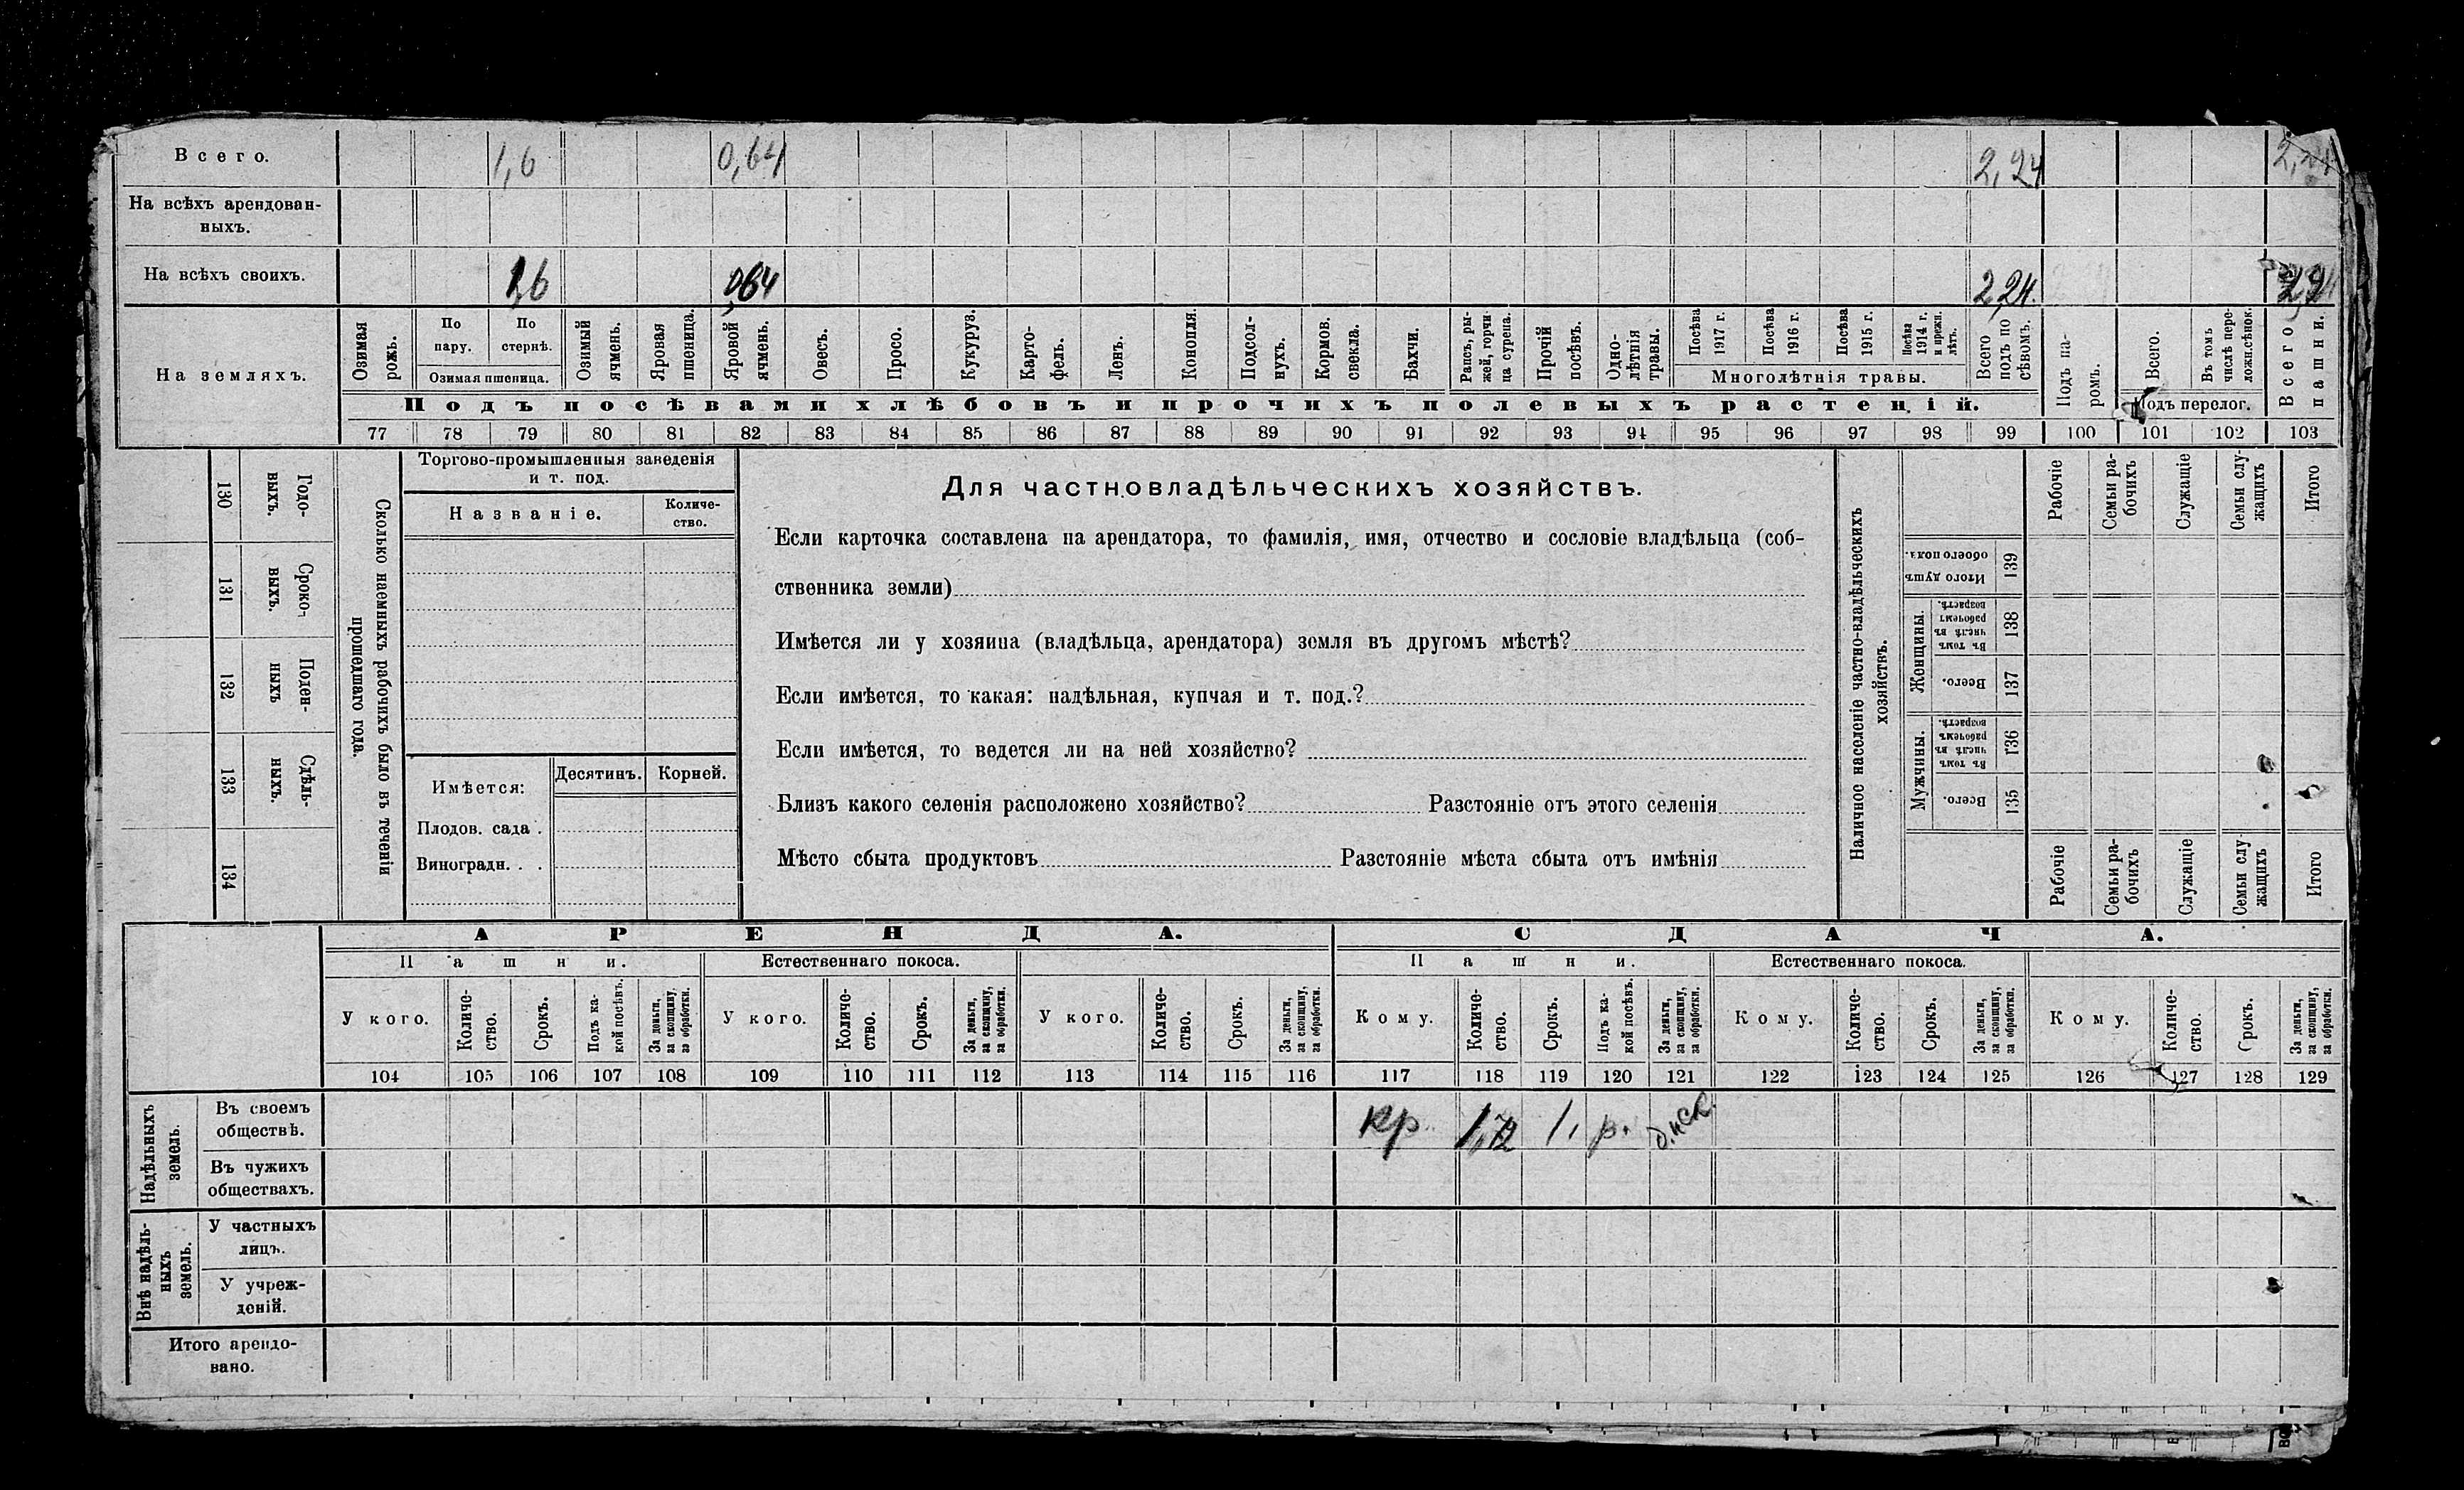 Всего. 1,6 0,64 2,24 2,24
На всѣхъ арендован-
ныхъ.
На всѣхъ своихъ. 1,6 0,64 2,24.
На земляхъ.
Озимая рожь.
По пару.
По стернѣ.
Озимая пшеница.
Озимый ячмень.
Яровая пшеница.
Яровой ячмень.
Овесъ.
Просо.
Кукуруз.
Карто-
фель.
Ленъ.
Конопля.
Подсол-
нухъ.
Кормов.
свекла.
Бахчи.
Рапсъ, ры-
жей, горчи
ца сурепа.
Прочій
посѣвъ.
Одно-
лѣтнія
травы.
Посѣва
1917 г.
Посѣва
1916 г.
Посѣва
1915 г.
Посѣва
1914 г.
и прежн.
лѣтъ.
Многолѣтнія травы.
Всего
подъ по
сѣвомъ.
Подъ па-
ромъ.
Всего.
Въ томъ
числѣ пере-
ложн.сѣнок.
Подъ перелог.
Всего
пашни.
Подъ посѣвами хлѣбовъ и прочихъ полевыхъ растеній.
77 78 79 80 81 82 83 84 85 86 87 88 89 90 91 92 93 94 95 96 97 98 99 100 101 102 103
130 Годо-
выхъ.
131 Сроко-
выхъ.
132 Поден-
ныхъ
133 Сдѣль-
ныхъ.
134
Сколько наемныхъ рабочихъ было въ теченіи
прошедшаго года.
Торгово-промышленныя заведенія
и т. под.
Названіе.
Количе-
ство.
Имѣется:
Десятинъ.
Корней.
Плодов. сада .
Виноградн. . .
Для частновладѣльческихъ хозяйствъ.
Если карточка составлена на арендатора, то фамилія, имя, отчество и сословіе владѣльца (соб-
ственника земли)
Имѣется ли у хозяина (владѣльца, арендатора) земля въ другомъ мѣстѣ?
Если имѣется, то какая: надѣльная, купчая и т. под.?
Если имѣется, то ведется ли на ней хозяйство?
Близъ какого селенія расположено хозяйство? Разстояніе отъ этого селенія
Мѣсто сбыта продуктовъ Разстояніе мѣста сбыта отъ имѣнія
Наличное населеніе частно-владѣльческихъ
хозяйствъ.
Рабочіе
Семьи ра-
бочихъ
Служащіе
Семьи слу-
жащихъ
Итого
Итого душъ
обоего пола.
139
Женщины.
Въ томъ
числѣ въ
рабочемъ
возрастѣ.
138
Всего.
137
Мужчины.
Въ томъ
числѣ въ
рабочемъ
возрастѣ.
136
Всего.
135
Рабочіе
Семьи ра-
бочихъ
Служащіе
Семьи слу
жащихъ
Итого
АРЕНДА. СДАЧА.
Пашни. Естественнаго покоса. Пашни. Естественнаго покоса.
У кого.
Количе-
ство.
Срокъ.
Подъ ка-
кой посѣвъ.
За деньги,
за скопщину,
за обработки.
У кого.
Количе-
ство.
Срокъ.
За деньги,
за скопщину,
за обработки.
У кого.
Количе-
ство.
Срокъ.
За деньги,
за скопщину,
за обработки.
Кому.
Количе-
ство.
Срокъ.
Подъ ка-
кой посѣвъ.
За деньги,
за скопщину,
за обработки.
Кому.
Количе-
ство.
Срокъ.
За деньги,
за скопщину,
за обработки.
Кому.
Количе-
ство.
Срокъ.
За деньги,
за скопщину,
за обработки.
104 105 106 107 108 109 110 111 112 113 114 115 116 117 118 119 120 121 122 123 124 125 126 127 128 129
Надѣльныхъ
земель.
Въ своемъ
обществѣ.
кр. 1, р.
Въ чужихъ
обществахъ.
Внѣ надѣль-
ныхъ
земель.
У частныхъ
лицъ.
У учреж-
деній.
Итого арендо-
вано.